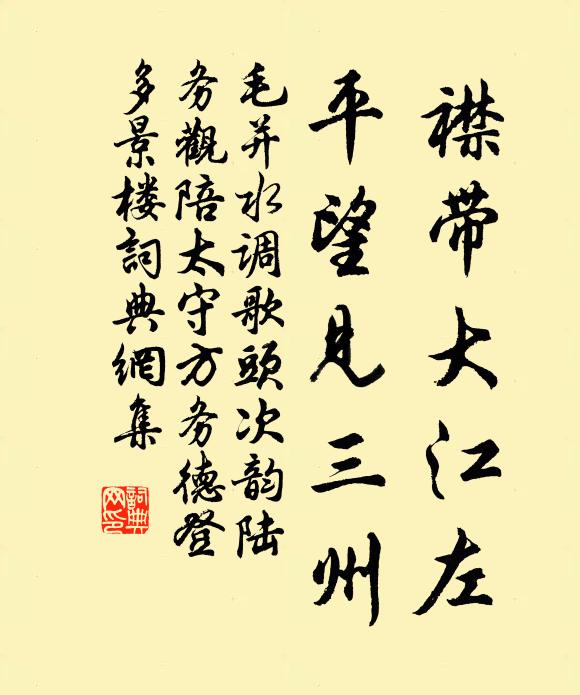 襟带大江左
平望见三州
毛并水调歌头次韵陆
务观陪太守方务德登
多景楼词典网集
詞典网印